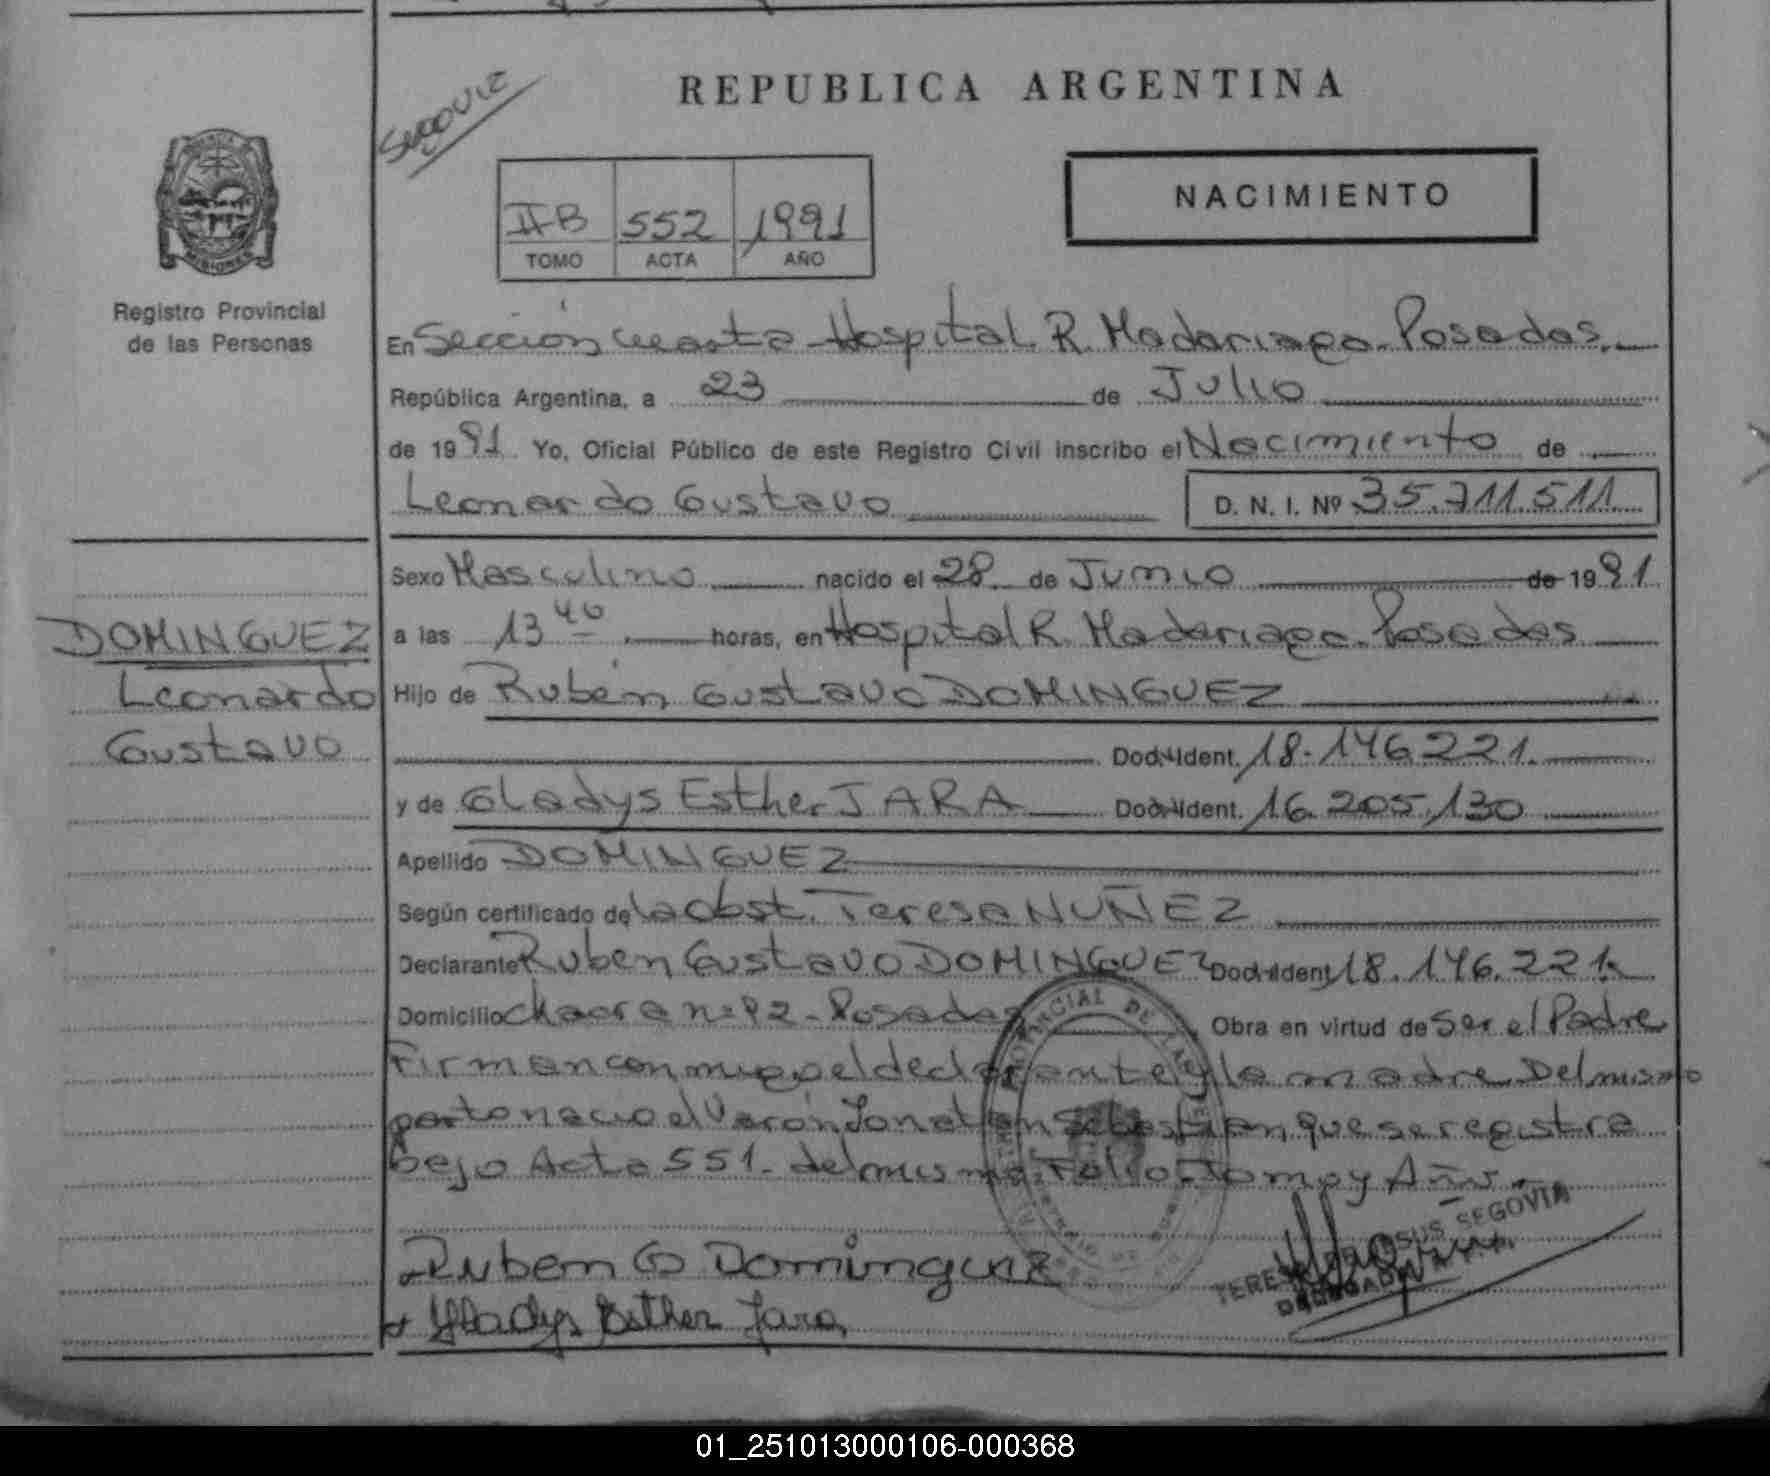 REPUBLICA ARGENTINA
NACIMIENTO
II-B 552 1991
TOMO ACTA AÑO
MISIONES
Registro Provincial
de las Personas
DOMINGUEZ
Leonardo
Gustavo
En Sección cuarta - Hospital R. Madariaga - Posadas.
República Argentina, a 23 de Julio
de 1991 Yo, Oficial Público de este Registro Civil inscribo el Nacimiento de
Leonardo Gustavo D. N. I. Nº 35.711.511
Sexo Masculino nacido el 28 de Junio de 1991
a las 13 40 horas, en Hospital R. Madariaga - Posadas
Hijo de Rubén Gustavo DOMINGUEZ
Doc. Ident. 18.146.221.
y de Gladys Esther JARA Doc. Ident. 16.205.130
Apellido DOMINGUEZ
Según certificado de la obst. Teresa NUÑEZ
Declarante Ruben Gustavo DOMINGUEZ Doc. Ident. 18.146.221.
Domicilio chacra nº 92 - Posadas Obra en virtud de ser el Padre
Firman conmigo el declarante y la madre. Del mismo
parto nacio el Varón Jonatan Sebastian, que se registra
bajo Acta 551 - del mismo Folio Tomo y Año.
Ruben G Dominguez
Gladys Esther Jara
SEGOVIA
01_251013000106-000368